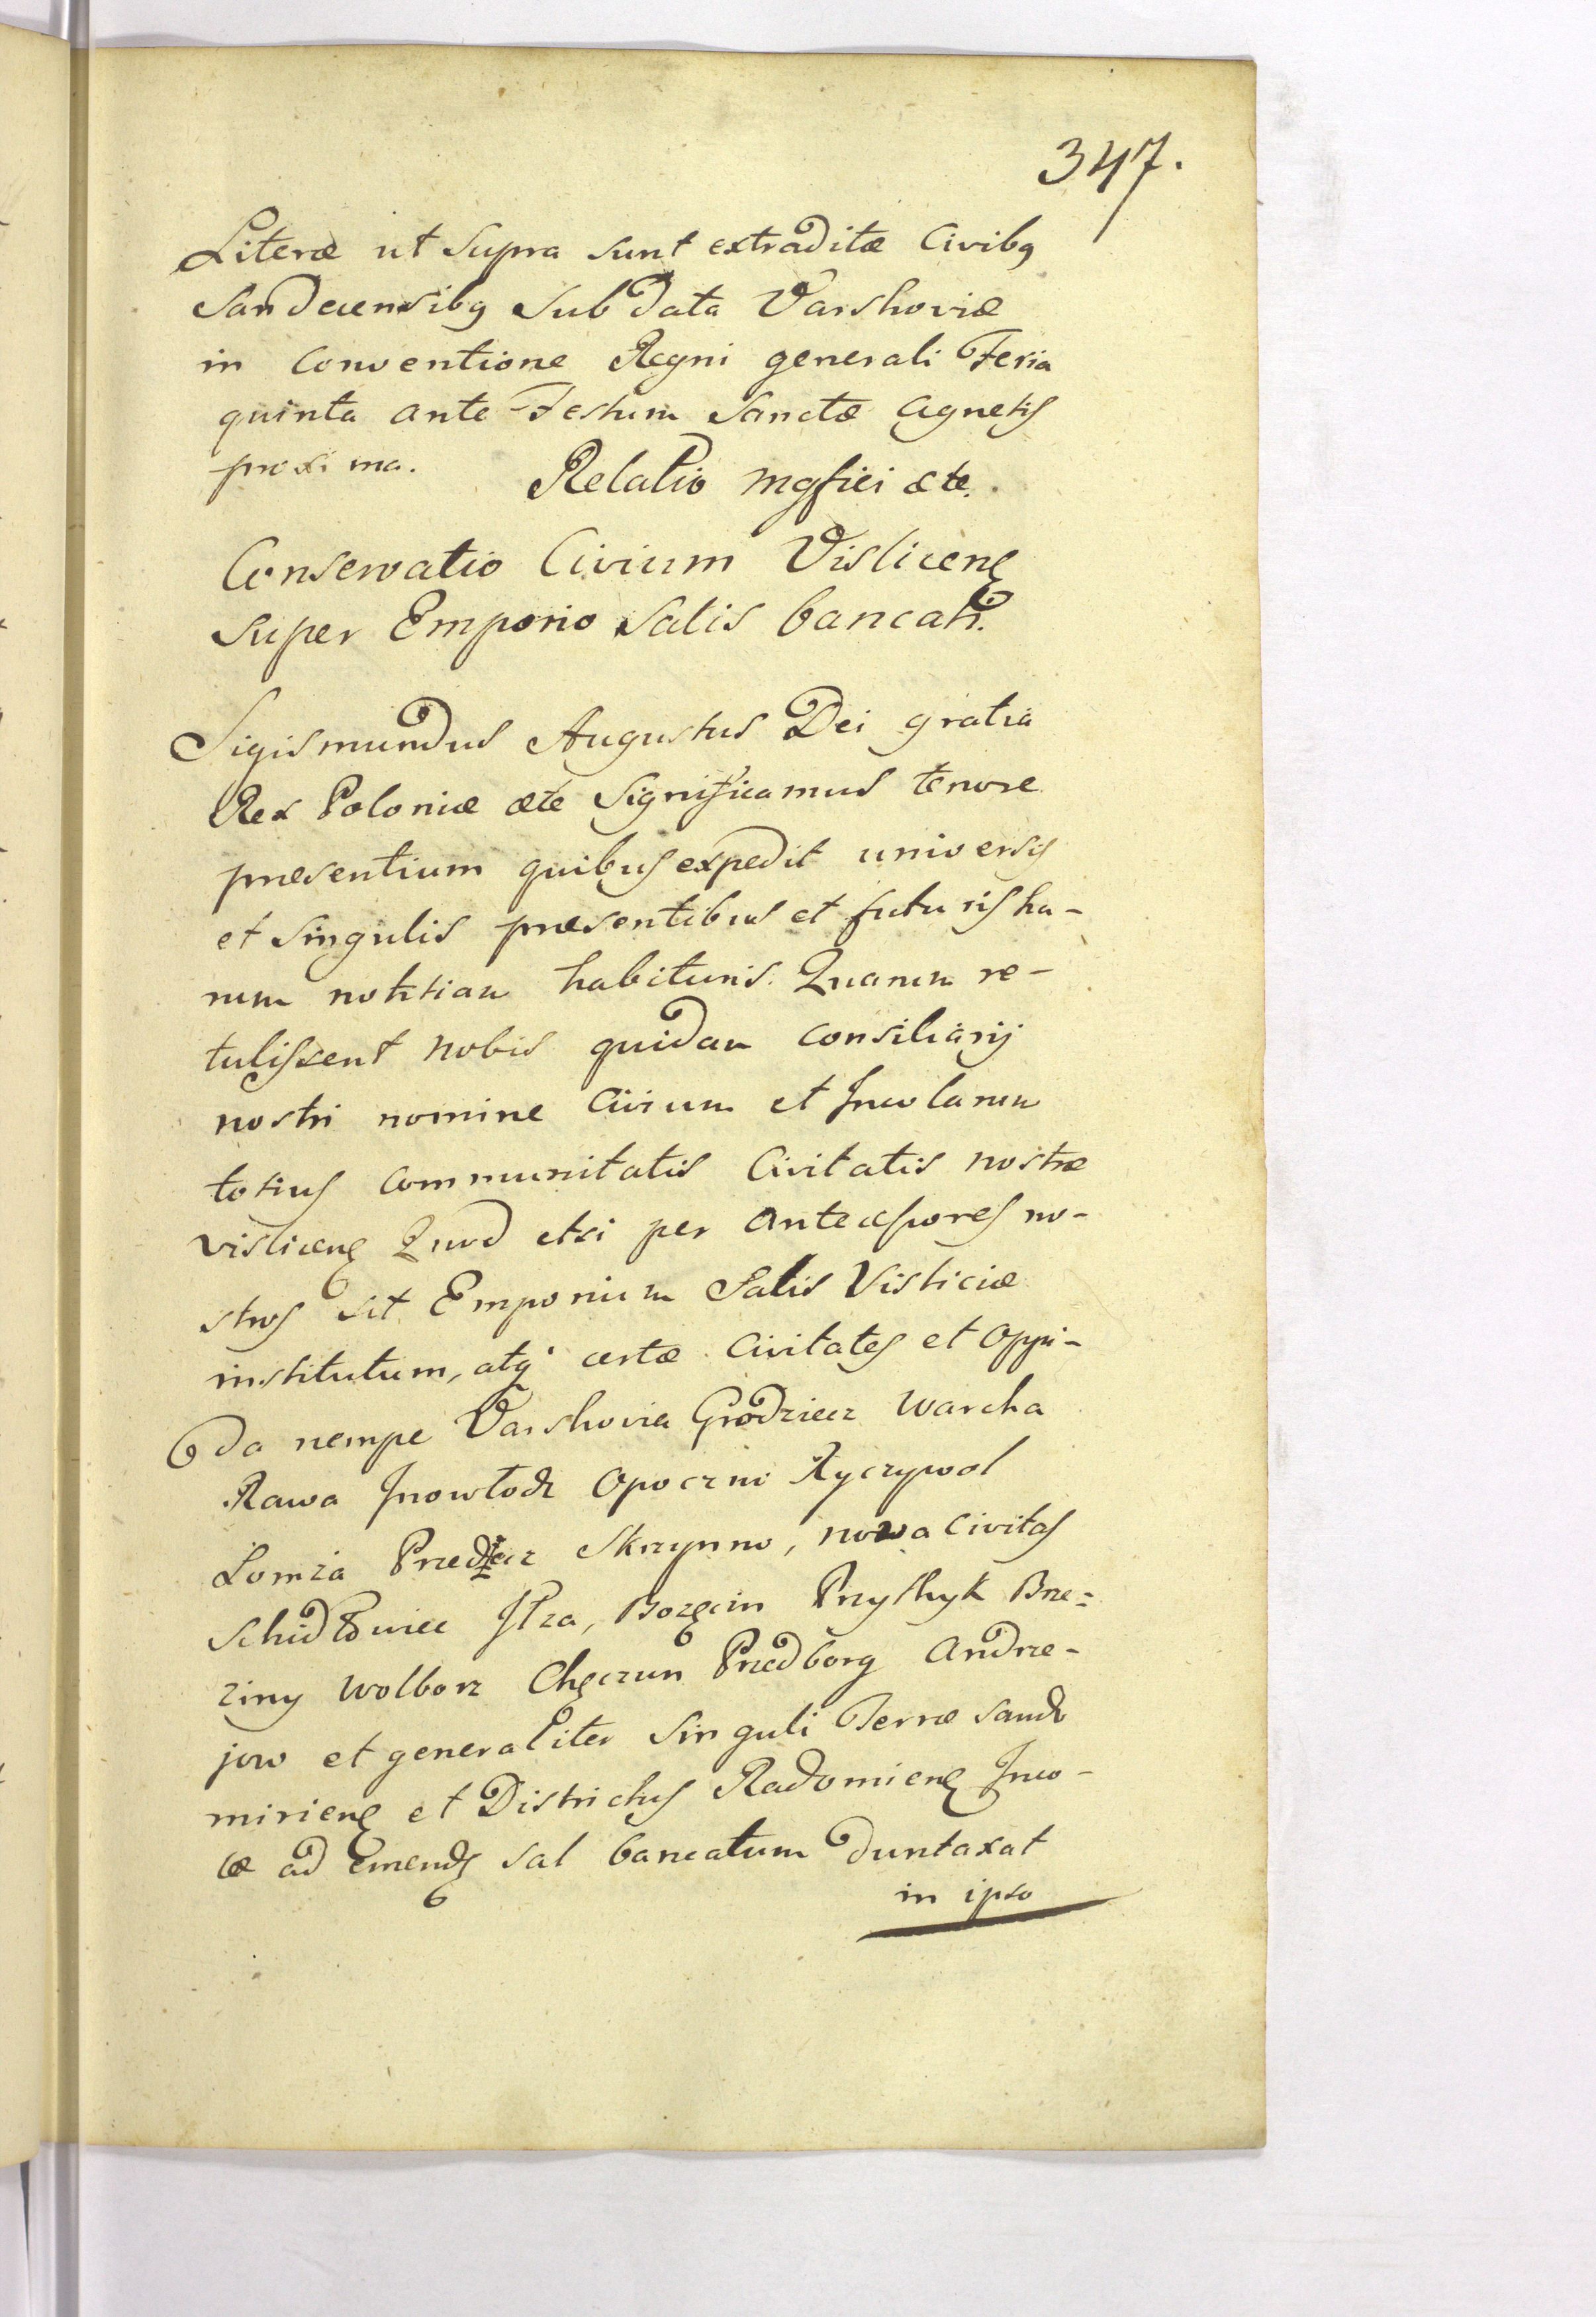 347.
Literæ ut supra sunt extraditæ Civibq
Sandecensibq sub data Varshoviæ
in Conventione Regni generali Feria
quinta ante Festum Sanctæ Agnetis
proxima. Relatio mgfici etc.
Conservatio Civium Vislicenę
super Emporio Salis bancati.
Sigismundus Augustus Dei gratia
Rex Poloniæ etc Significamus tenore
præsentium quibus expedit universis
et singulis præsentibus et futuris ha-
rum notitiam habituris. Quanm re-
tulissent nobis quidam consiliarij
nostri nomine Civium et Incolarum
totius communitatis Civitatis nostræ
vislicenę Quod etsi per Antecessores no-
stros sit Emporium Salis Visliciæ
institutum, atq certæ Civitates et Oppi-
da nempe Varshovia Grodziecz Warcha
Rawa Inowłodz Opoczno Ryczywol
Lomza Przedecz Skrzynno, nowa Civitas
Schidłowiec Iłza, Bozęcin Przyshyk Brze-
ziny Wolborz Chęczun Przedborg Andrze-
jow et generaliter singuli Terræ Sando
mirienę et Districtus Radomienę Inco-
læ ad emendę sal bancatum duntaxat
in ipso